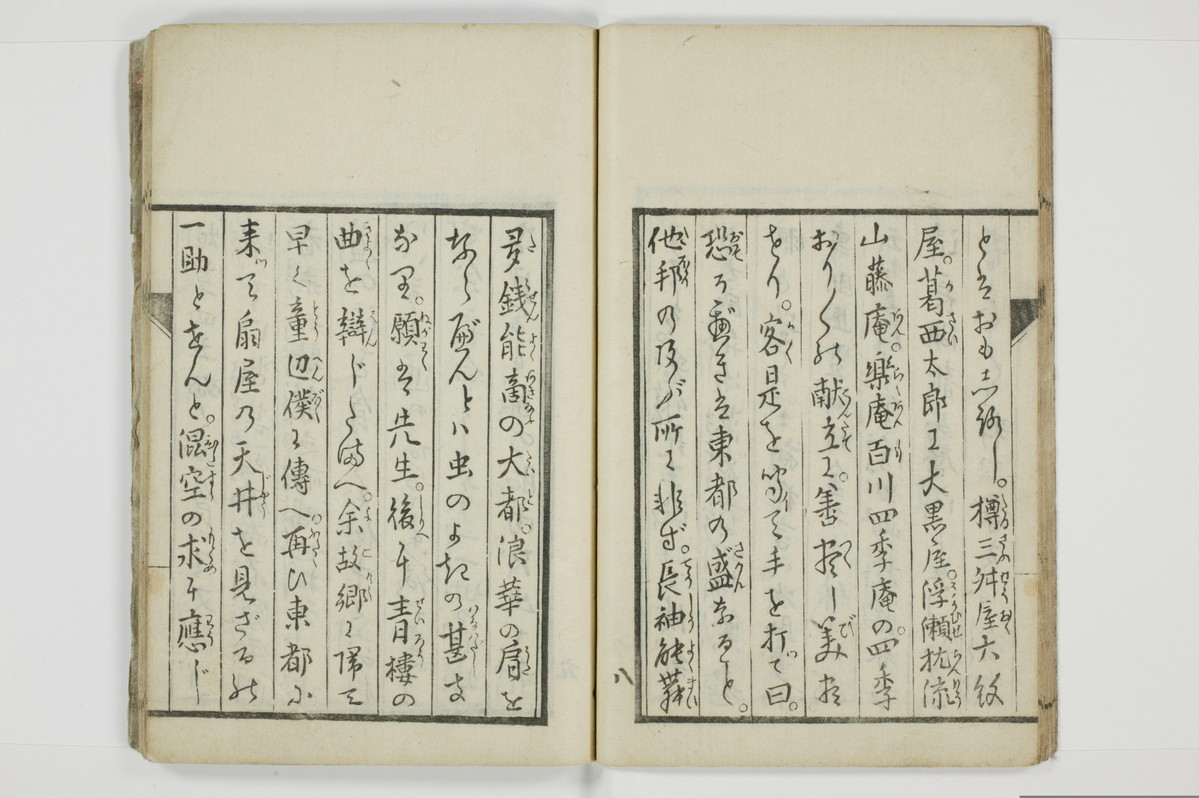 とはおもしろし。樽三舛屋大紋
屋。葛西太郎に大黒屋。浮瀬枕流
山藤庵。楽庵百川四季庵の四季
おり〳〵の献立に。善尽し美尽
せり。客是を聞て手を打て曰。
恐るべきは東都の盛なること。
他邦の及ぶ所に非ず。長袖能舞
八
多銭能商の大都。浪華の肩を
ならべんとは虫のよき の甚き
なり。願くは先生。後に青楼の
曲を辯じたまへ。余故郷に帰て
早く童辺僕に傳へ。再び東都に
来つて扇屋の天井を見ざるの
一助とせんと。混空の求に應じ